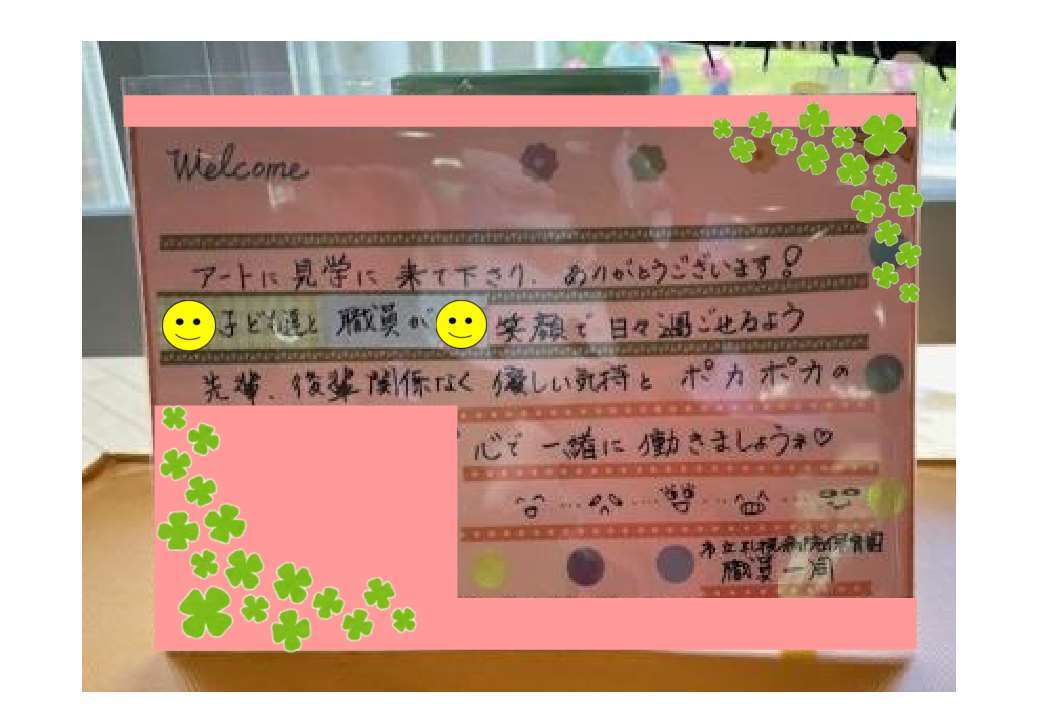 Welcome
アートに見学に来て下さり、ありがとうございます!
子ども達と職員が笑顔で日々過ごせるよう
先輩、後輩関係なく優しい気持と ポカポカの
心で一緒に働きましょうネ♡
市立札幌病院保育園
職員一同